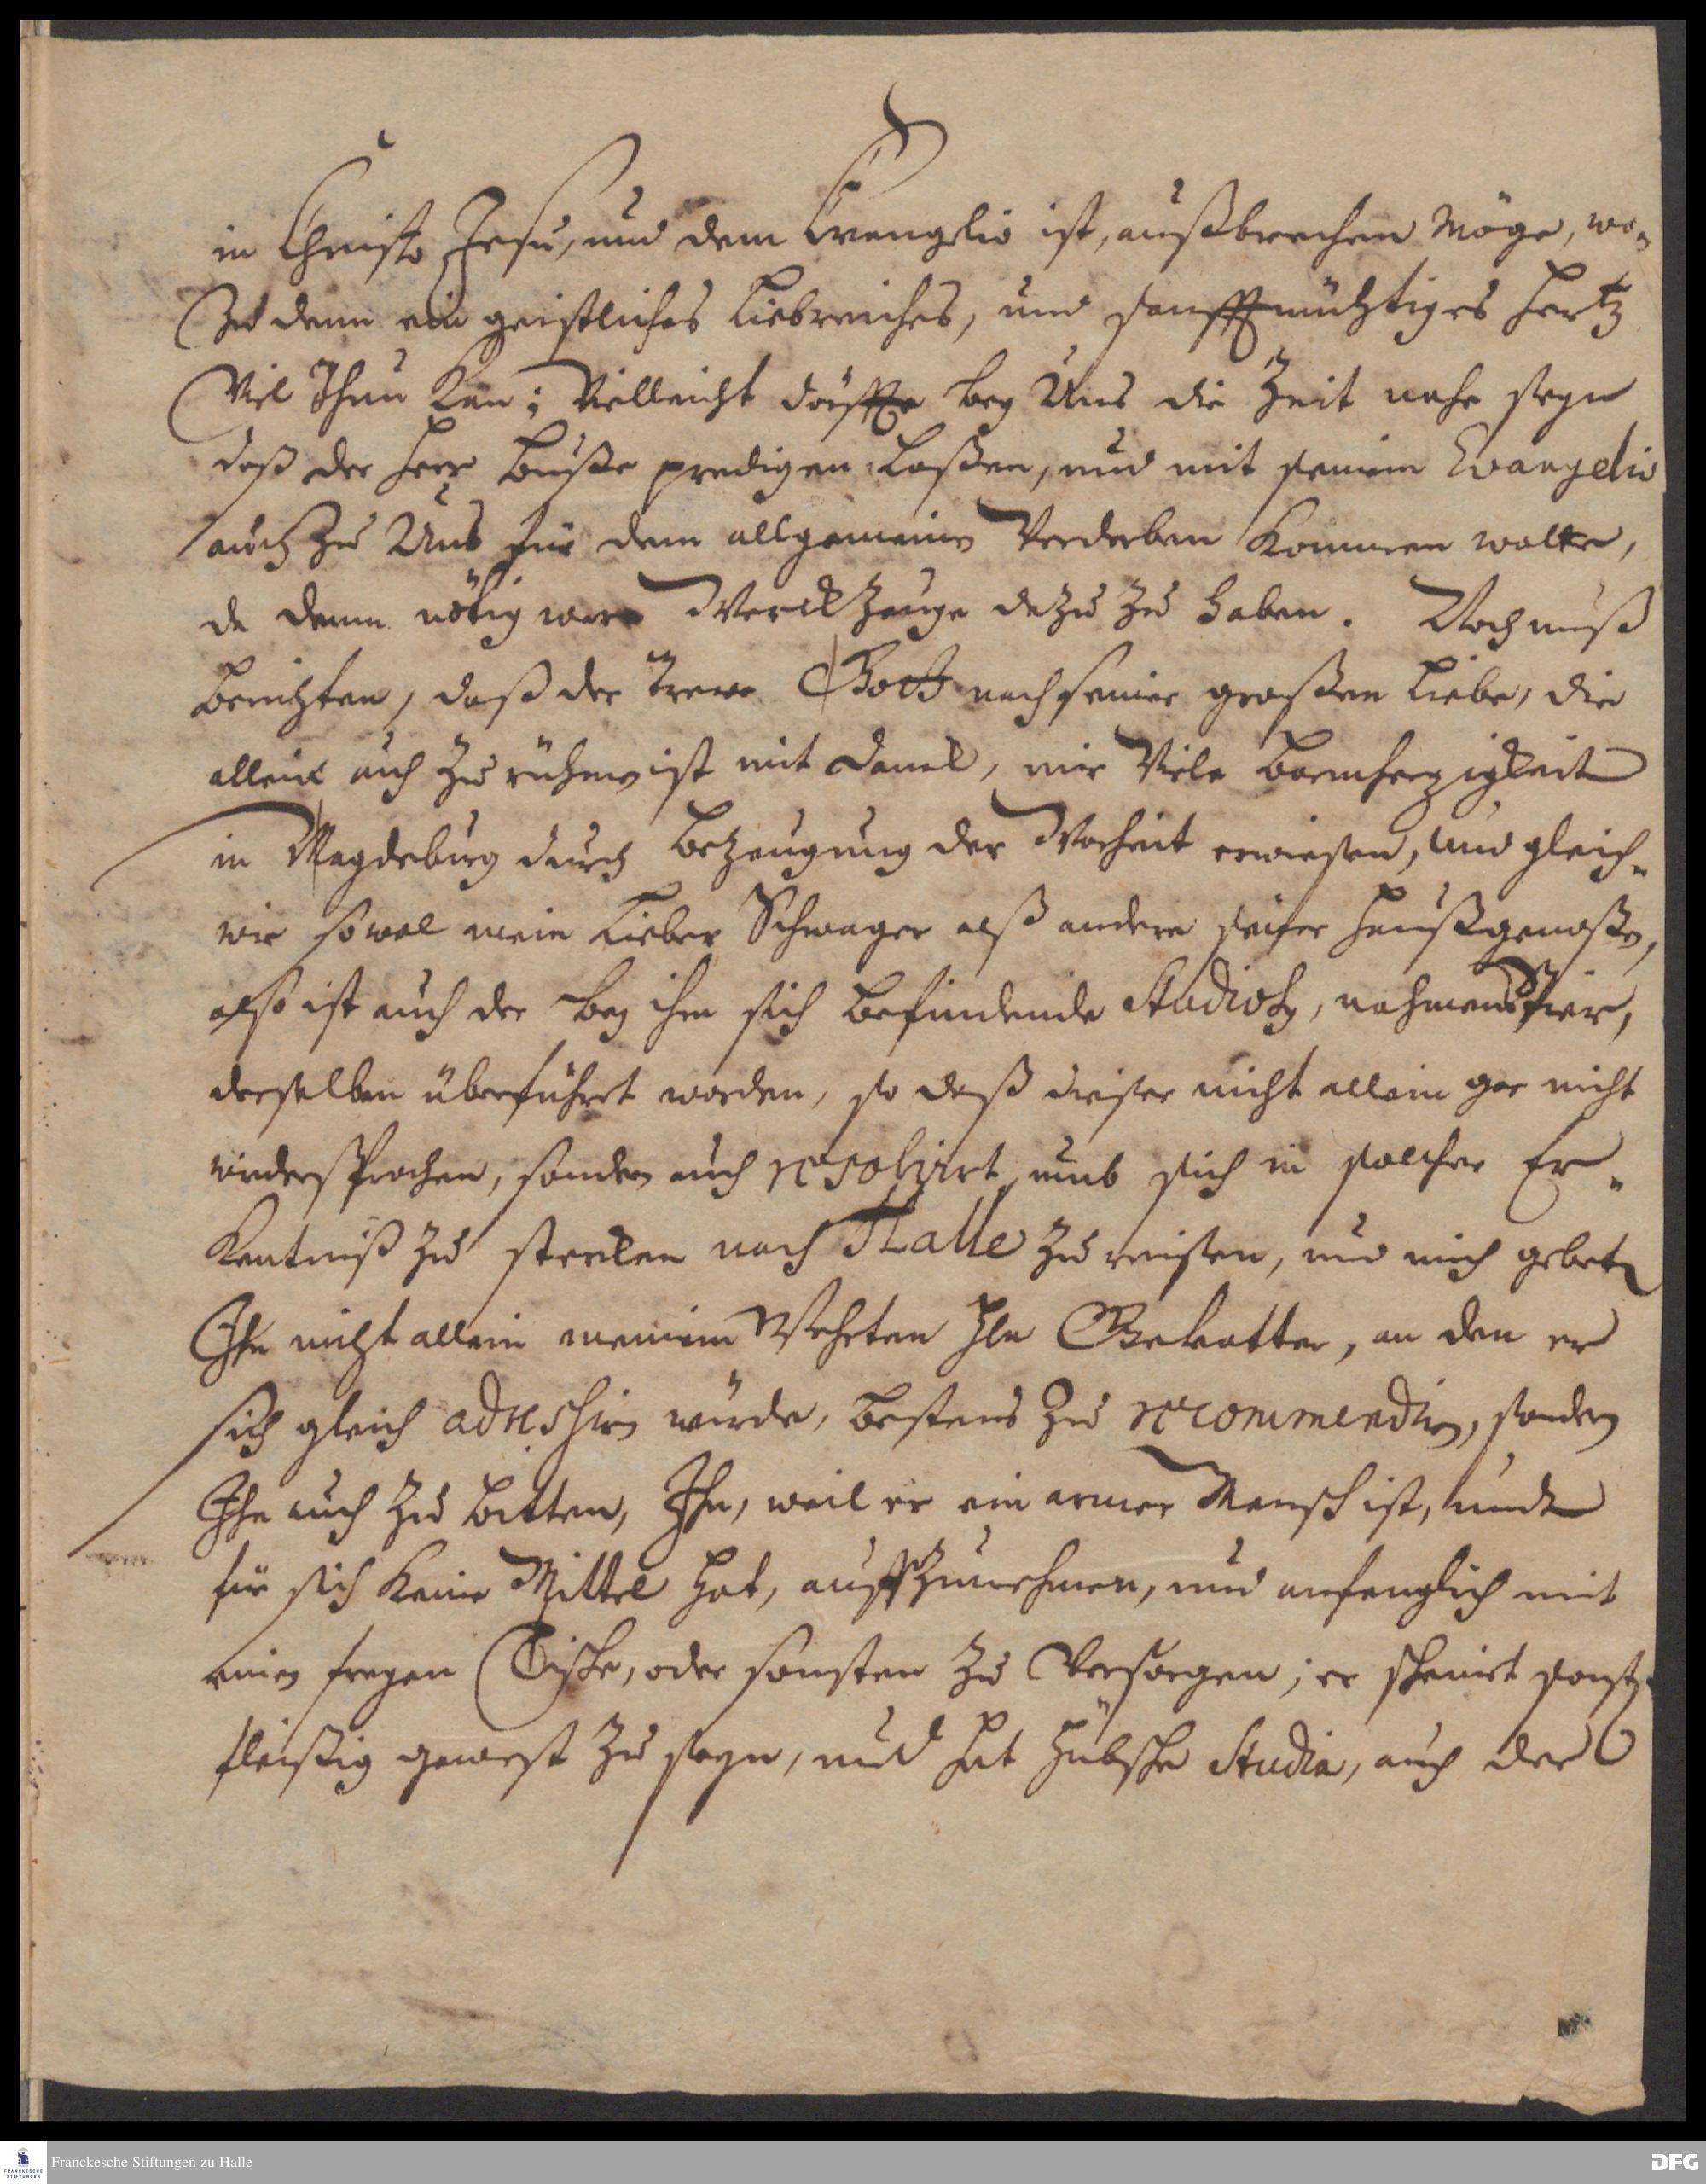 in Christo Jesu, und dem Evangelio ist, außbrechen möge, wo-
Zu denn ein geistliches liebreiches, und sanfftmühtiges Hertz
Viel Thun Kan; Vielleicht dörffte bey Uns die Zeit nahe seyn
daß der Herr Buße predigen laßen, und mit seinem Evangelio
auch Zu Uns für dem allgemeinen Verderben Kommen wolte,
da denn nötig wäre WerckZeuge dazu zu haben. Noch muß
berichten, daß der Trewe Gott nach seiner großen Liebe, die
allein auch Zu rühmen ist mit Danck, mir Viele Barmherzigkeit
in Magdeburg durch bezeugung der Warheit erwiesen, und gleich-
wie sowol mein lieber Schwager alß andere seiner Haußgenoßen,
also ist auch der bey ihm sich befindende Studios9, nahmens
derselben überführt worden, so daß dieser nicht allein gar nicht
wiedersprochen, sondern auch resolvirt, umb sich in solcher Er-
Kentniß zu stercken nach Halle zu reisen, und mich gebeten
Ihn nicht allein meinem Wehrten Hln Gevatter, an den er
sich gleich adressiren würde, bestens Zu recommendiren, sondern
Ihn auch Zu bitten, Ihn, weil er ein armer Mensch ist, undt
für sich Keine Mittel hat, auffzunehmen, und anfenglich mit
einen freyen Tische, oder sonsten zu Versorgen; er scheinet sonst
fleißig gewest Zu seyn, und hat hübsche Studia, auch der
Franckesche Stiftungen zu Halle
FRANCKESCHE
STIFTUNGEN
DFG